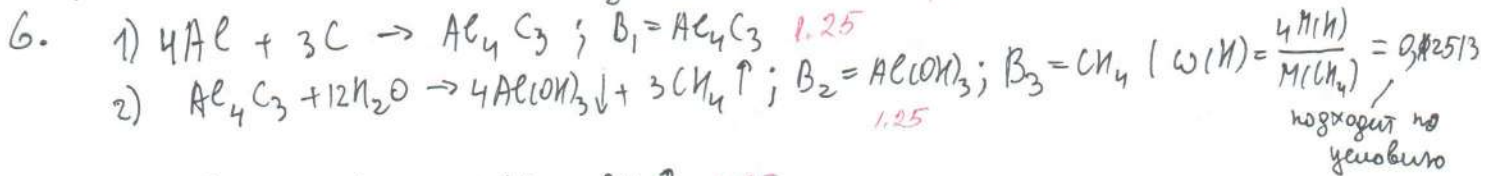 6. 1) 4Al + 3C → Al₄C₃ ; B₁ = Al₄C₃ 1.25
2) Al₄C₃ + 12H₂O → 4Al(OH)₃↓ + 3CH₄↑ ; B₂ = Al(OH)₃ ; B₃ = CH₄ ( ω(H) = 4M(H)/M(CH₄) = 0,2513
1.25
подходит по
условию